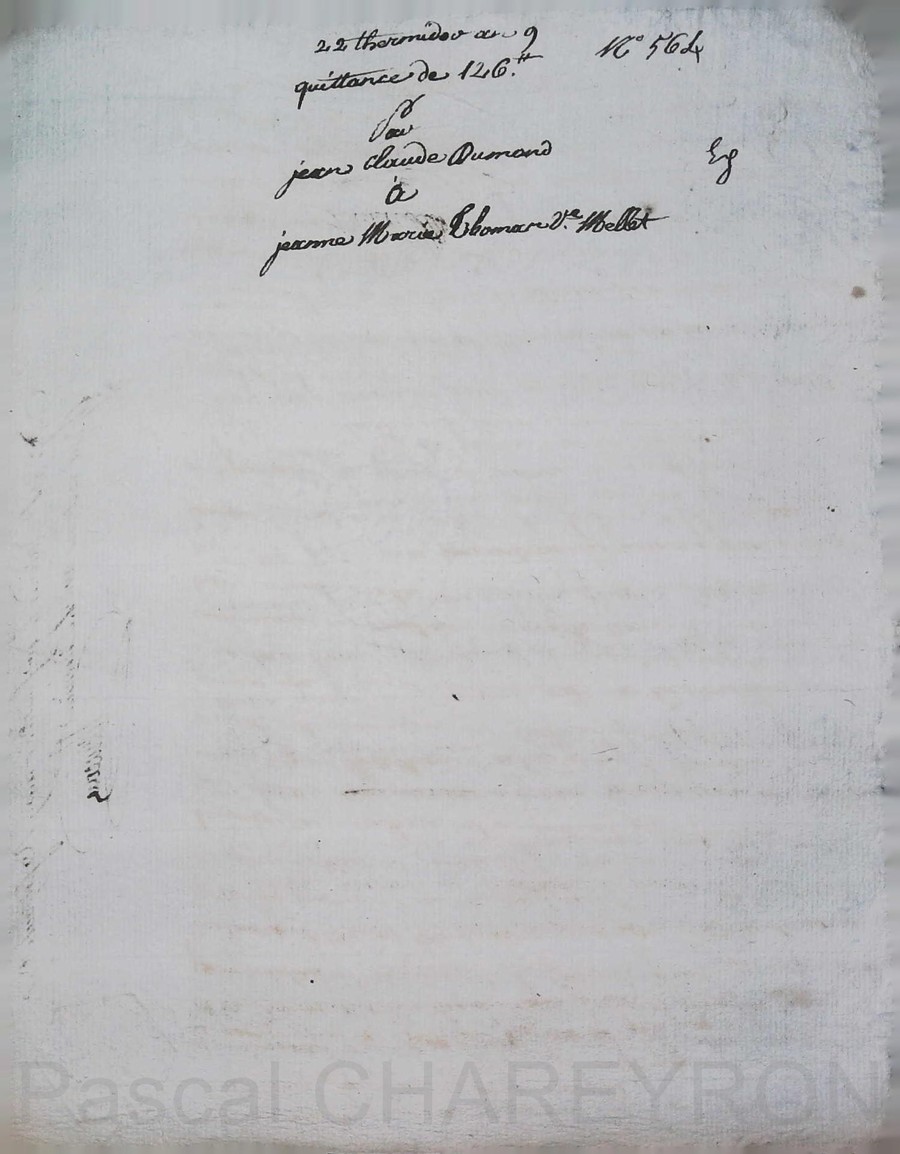 22 thermidor an 9
N° 564
quittance de 126.tt
Par
jean Claude Dumond
Eg
à
jeanne Marie Thomas V.e Mellet
Pascal CHAREYRON